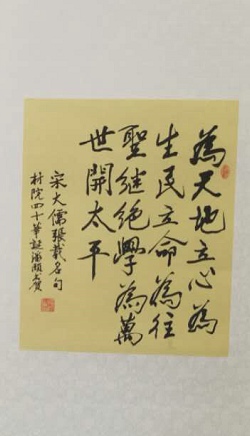 為天地立心為
生民立命為往
聖继绝學為萬
世開太平
宋大儒張載名句
村院四十華誕